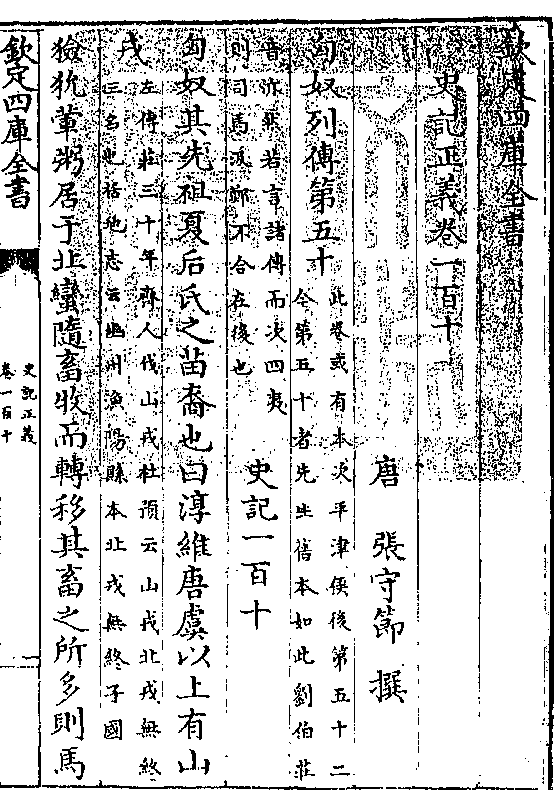 欽定四庫全書
史記正義卷一百十
唐 張守節 撰
匈奴列傳第五十
此卷或有本次平津侯後第五十二
今第五十者先生舊本如此劉伯莊
音亦然若言諸傳而次四夷
則司馬汲鄭不合在後也
史記一百十
匈奴其先祖夏后氏之苗裔也曰淳維唐虞以上有山
戎
左傳莊三十年齊人伐山戎杜預云山戎北戎無終
三名也括地志云幽州漁陽縣本北戎無終子國
獫狁葷粥居于北蠻隨畜牧而轉移其畜之所多則馬
欽定四庫全書
史記正義
卷一百十
一